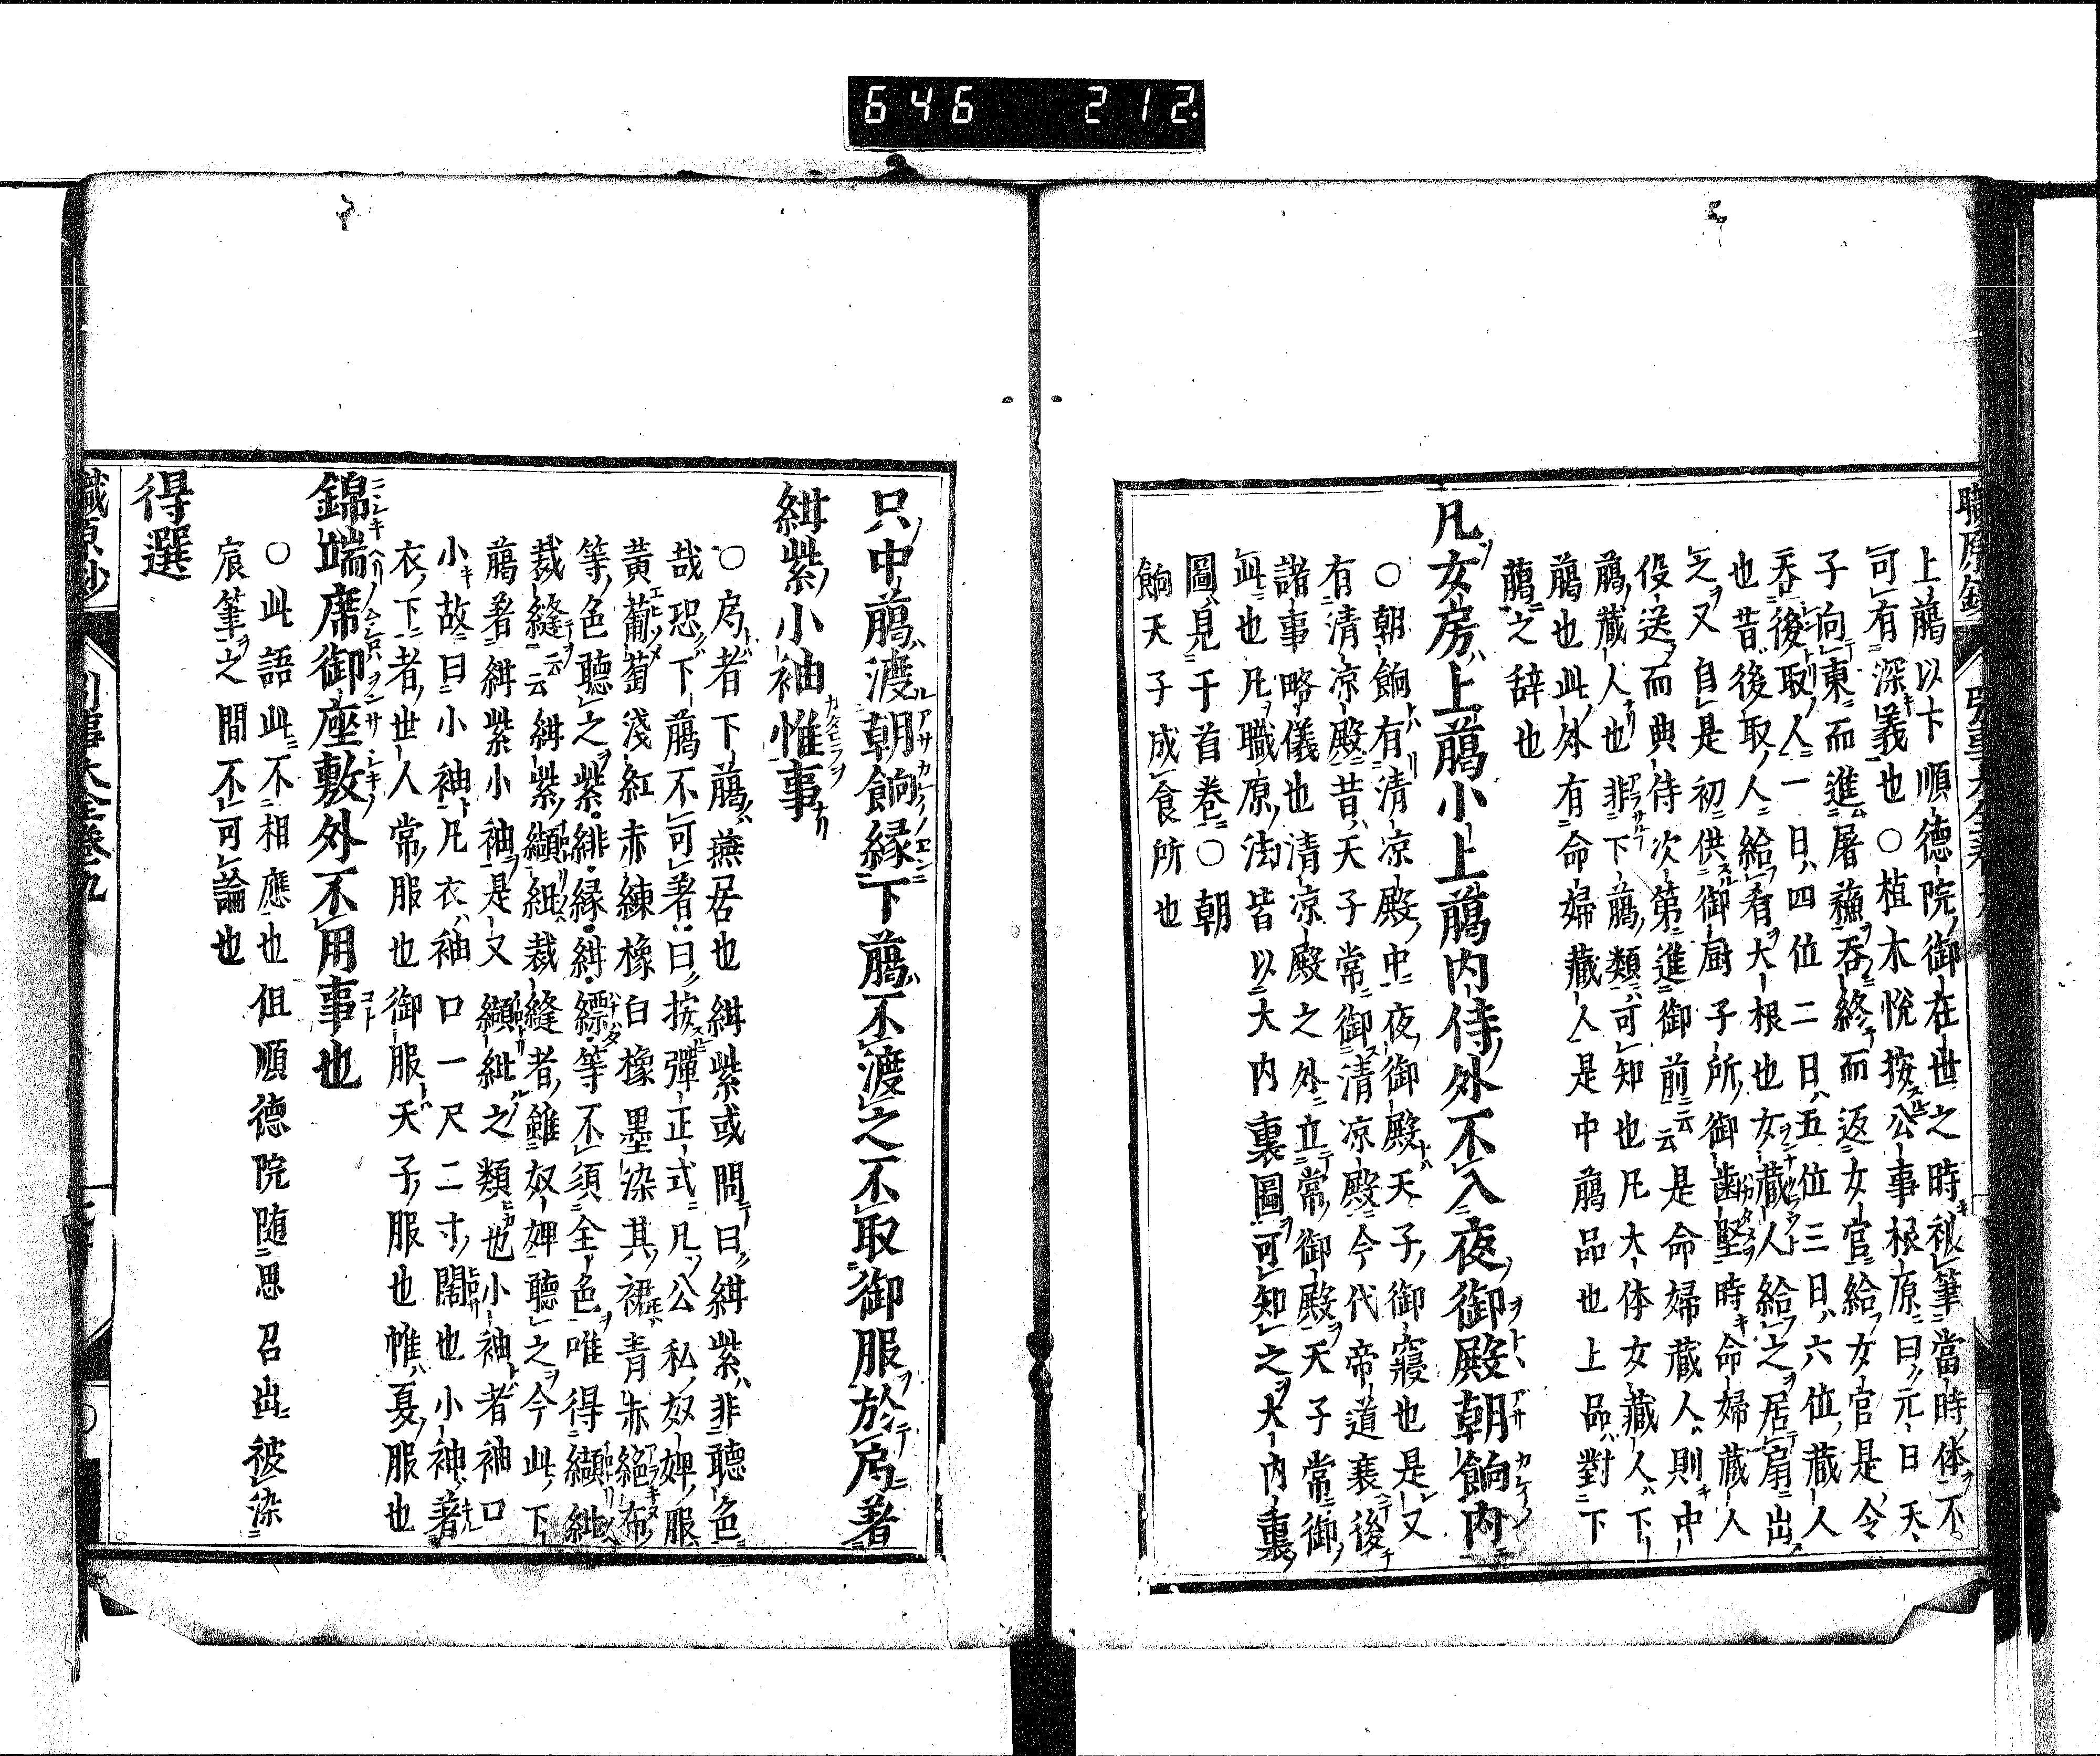 646 212.
職原鈔
上﨟以下順德院御在世之時被筆當時体不
可有深義也〇植木悅按公事根原曰元日天
子向東而進屠蘓吞終而返女官給女官是令
吞後取人一日四位二日五位三日六位藏人
也昔後取人給肴大根也女藏人給之居扇出
之又自是初供御厨子所御歯堅時命婦藏人
役送而典侍次第進御前云云是命婦藏人則中
﨟藏人也非下﨟類可知也凡大体女藏人下
﨟也此外有命婦藏人是中﨟品也上品對下
﨟之辞也
凡女房上﨟小上﨟内侍外不入夜御殿朝餉内
〇朝餉有清凉殿中夜御殿天子御寢也是又
有清凉殿昔天子常御清凉殿今代帝道衰後
諸事略儀也清凉殿之外立常御殿天子常御
此也凡職原法皆以大内裏圖可知之大内裏
圖見于首卷〇朝
餉天子成食所也
只中﨟渡朝餉縁下﨟不渡之不取御服於房著
紺紫小袖帷事
〇房者下﨟蕪居也紺紫或問曰紺紫非聽色
哉恐下﨟不可著曰按彈正式凡公私奴婢服
黃葡萄淺紅赤練橡白橡墨染其裙青赤絁布
等色聽之紫緋縁紺縹等不須全色唯得纈紕
裁縫云云紺紫纈紕裁縫者雖奴婢聽之今此下
﨟著紺紫小袖是又纈紕之類也小袖者袖口
小故曰小袖凡衣袖口一尺二寸闊也小袖著
衣下者世人常服也御服天子服也帷夏服也
錦端席御座敷外不用事也
〇此語此不相應也但順德院随思召出被染
宸筆之間不可論也
得選
職原鈔